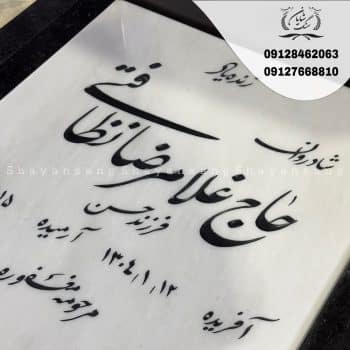 سنگ شایان
09128462063
09127668810
زنده یاد
شادروان
حاج غلامرضا نظافتی
Shayansang Shayansang
فرزند حسن
آرمیده
۱۳۰۴٫۱٫۱۲
آفریده
مرحومه مغفوره